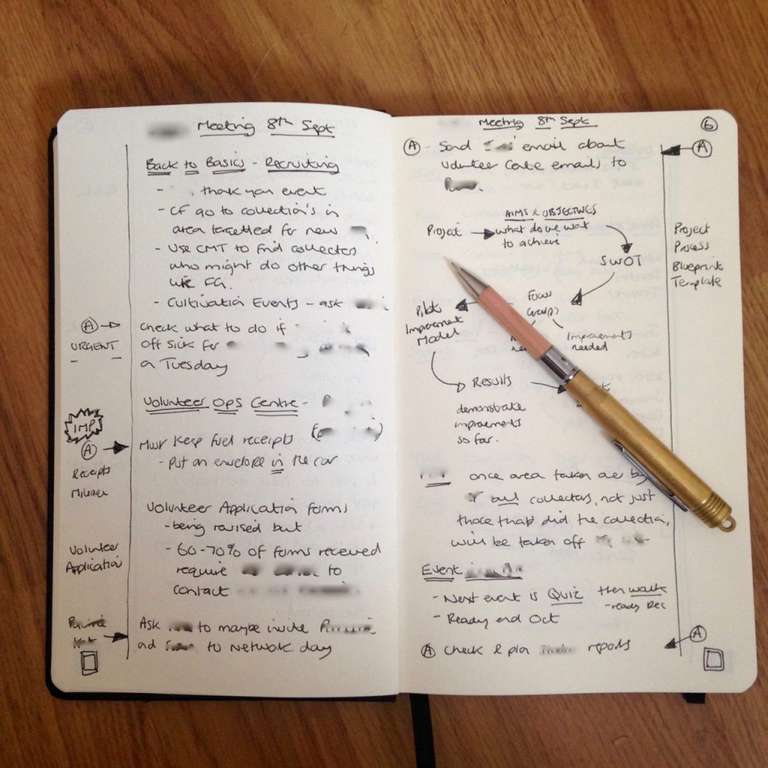 Meeting 8th Sept
Back to Basics - Recruiting
- thank you event
- CF go to collection's in
area targetted for new
- Use CMT to find collectors
who might do other things
like FG.
- Cultivation Events - ask
(A) →
URGENT
Check what to do if
off sick for
on a Tuesday
Volunteer Ops Centre -
IMP
(A)
Receipts
Mileage
Must keep fuel receipts
- Put an envelope in the car
Volunteer Application forms
- being revised but
Volunteer
Application
- 60-70% of forms received
require to
contact
Ask to maybe invite
and to Network day
Meeting 8th Sept
6
(A) - Send email about
volunteer care emails to
(A)
Project
AIMS & OBJECTIVES
what do we want
to achieve
SWOT
Focus
Groups
Improvements
needed
Pilot
Improvement
Model
RESULTS
demonstrate
improvements
so far.
Project
Process
Blueprint
Template
once area taken over by
all collectors, not just
those that did the collection,
will be taken off
Event
- Next event is Quiz then walk
- ready Dec
- Ready end Oct
(A) Check & plan reports
(A)